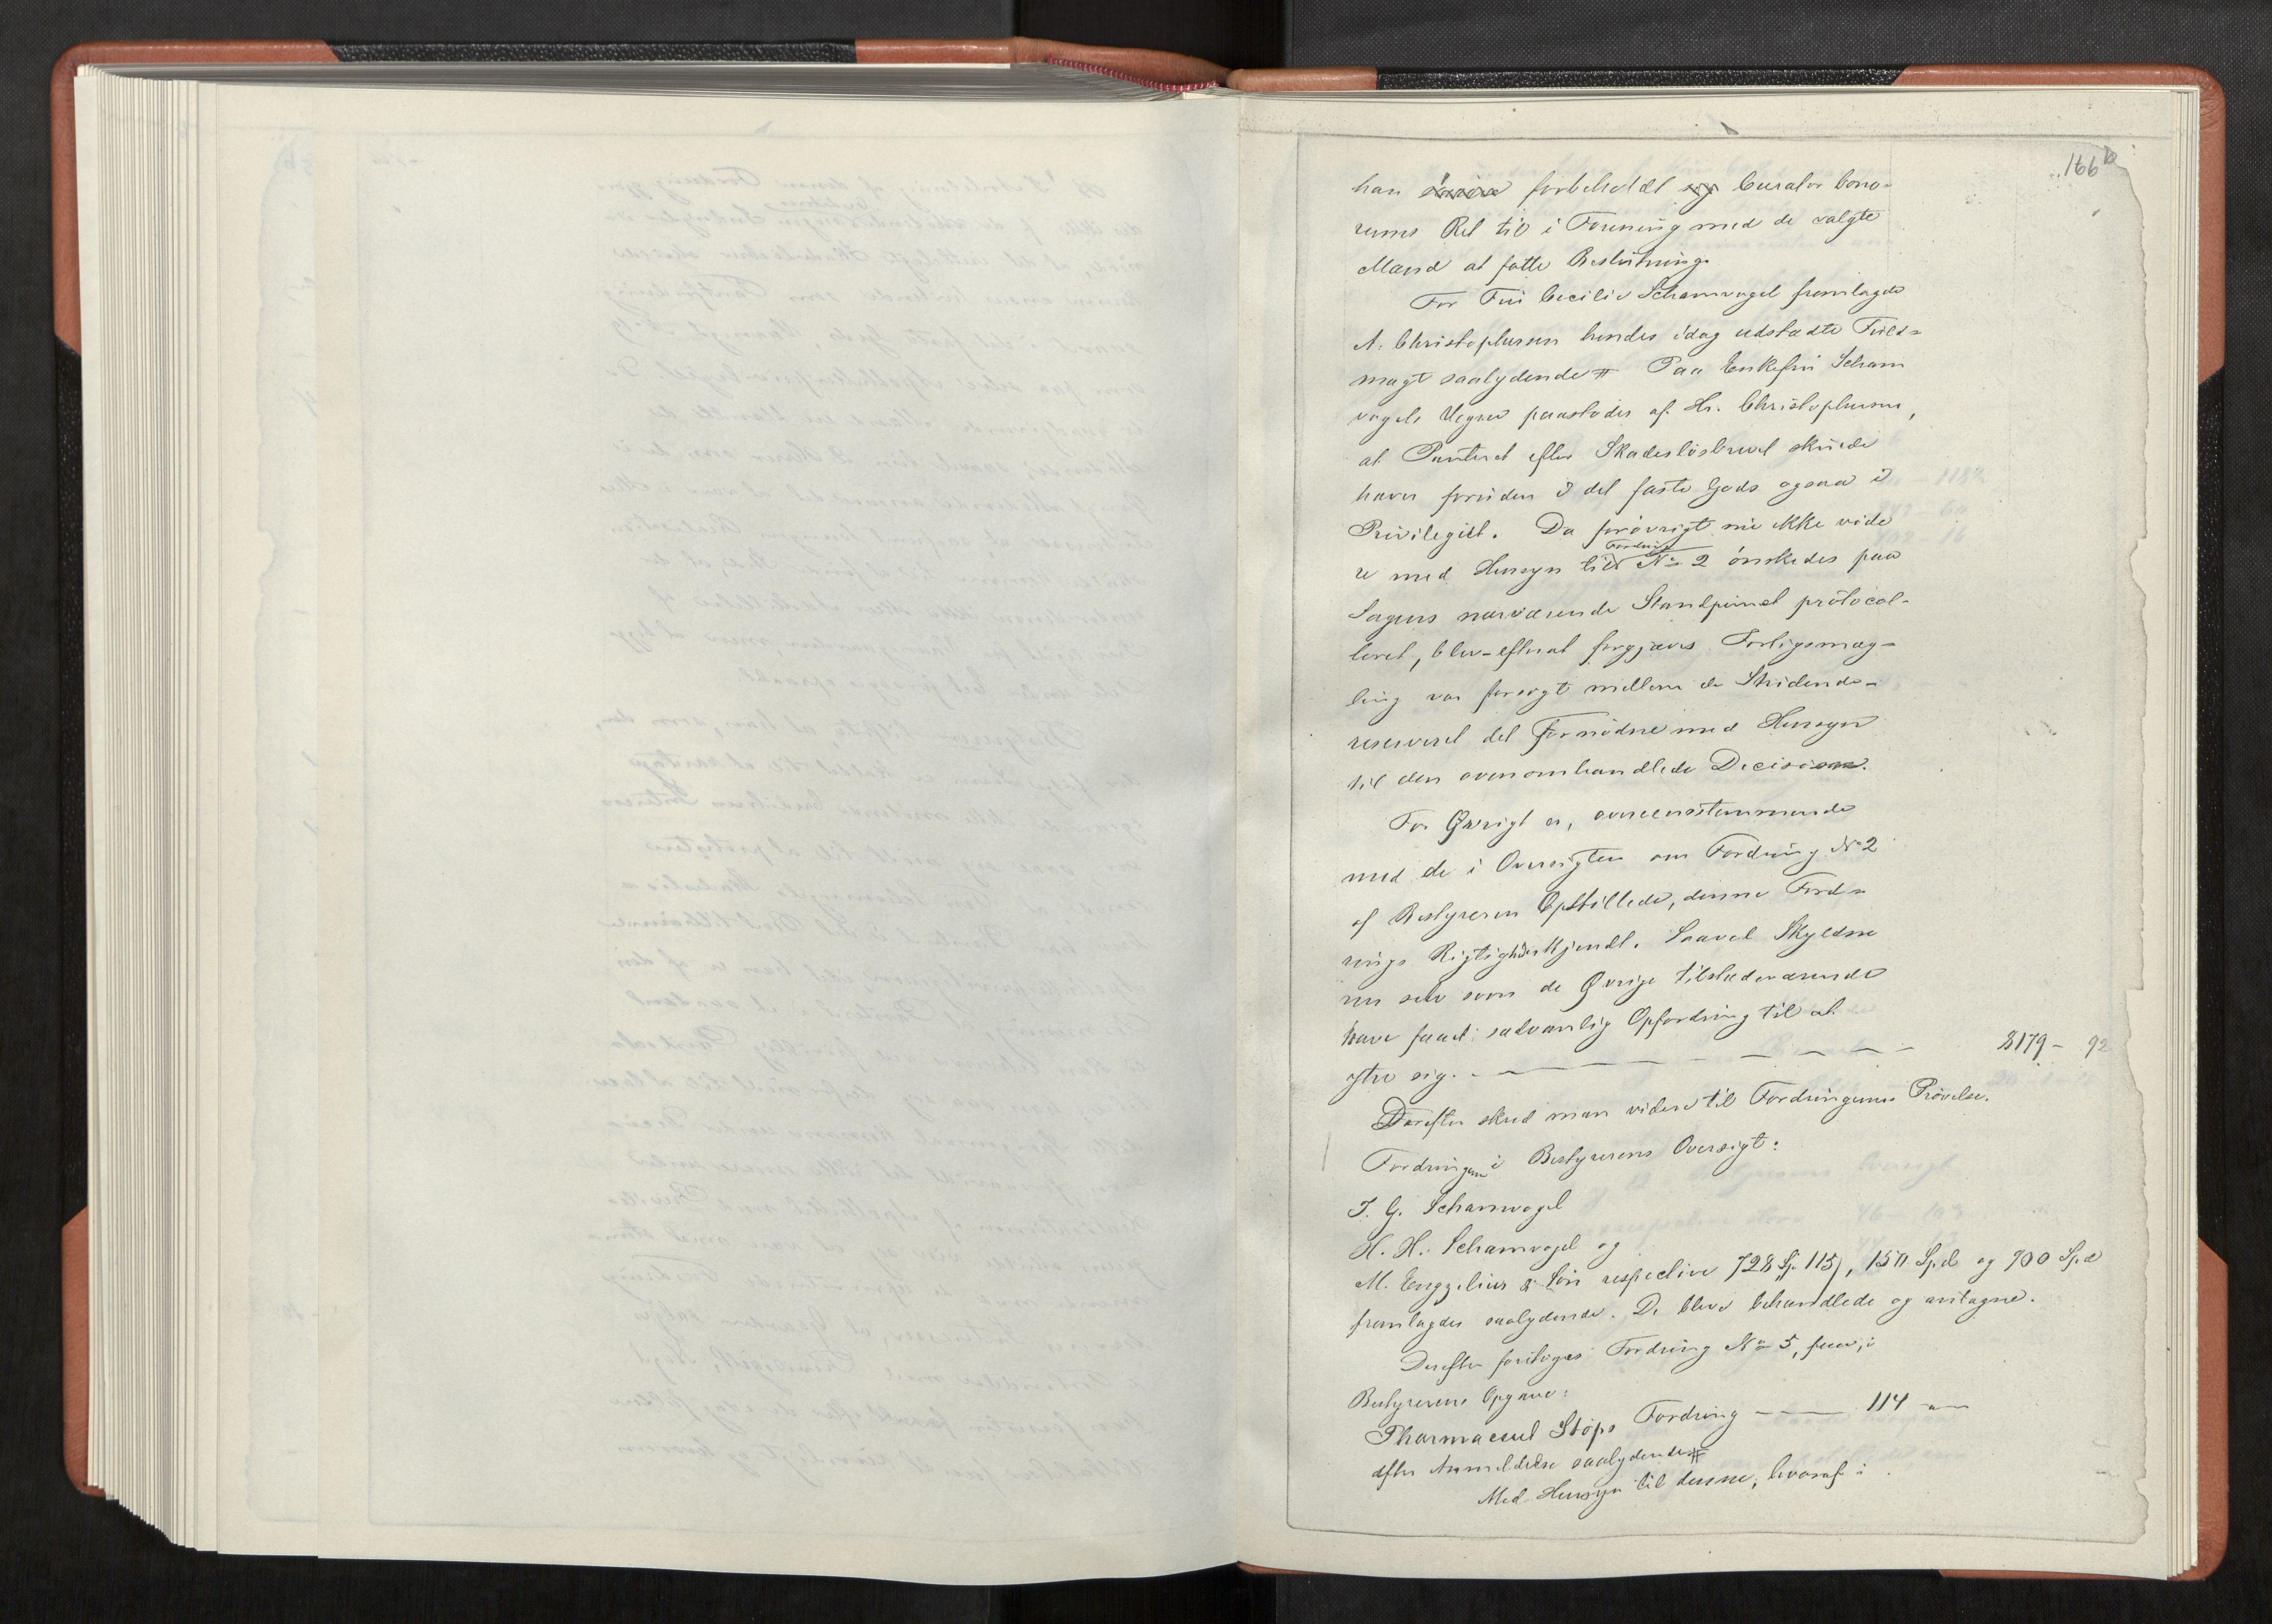 166 b
han forbeholdt Curator bono-
rums Ret til i Forening med de valgte
Mænd at fatte Beslutning.
For Fru Cecilie Schamvogel fremlagde
A. Christophersen hendes idag udstædte Fuld-
magt saalydende # Paa Enkefru Scham
vogels Vegne paastodes af Hr. Christophersen,
at Panteret efter Skadesløsbrevet skulde
haves foruden i det faste Gods ogsaa i
Privilegiet. Da forøvrigt nu ikke vide
re med Hensyn til Fordring No 2 ønskedes paa
Sagens nærværende Standpunct protocol-
leret, blev - efterat forgjæves Forligsmæg-
ling var forsøgt mellem de Stridende -
reserveret det Fornødne med Hensyn
til den ovenomhandlede Decision.
For Øvrigt er, overeensstemmende
med de i Oversigten om Fordring No 2
af Bestyreren Opstillede, denne Ford-
rings Rigtighed erkjendt. Saavel Skyldne
ren selv som de Øvrige tilstedeværende
have faaet sædvanlig Opfordring til at
ytre sig. - 8179 - 92
Derefter skred man videre til Fordringernes Prøvelse.
Fordringerne i Bestyrerens Oversigt:
J. G. Schamvogel
H. H. Schamvogel og
M. Søn respective 728 Sp. 115, 150 Spd og 900 Spd
fremlagdes saalydende. De bleve behandlede og antagne.
Derefter foretoges Fordring No 5, i
Bestyrerens Opgave:
Pharmaceut Støps Fordring - 114 -
efter Anmeldelse saalydende #
Med Hensyn til denne, hvoraf i